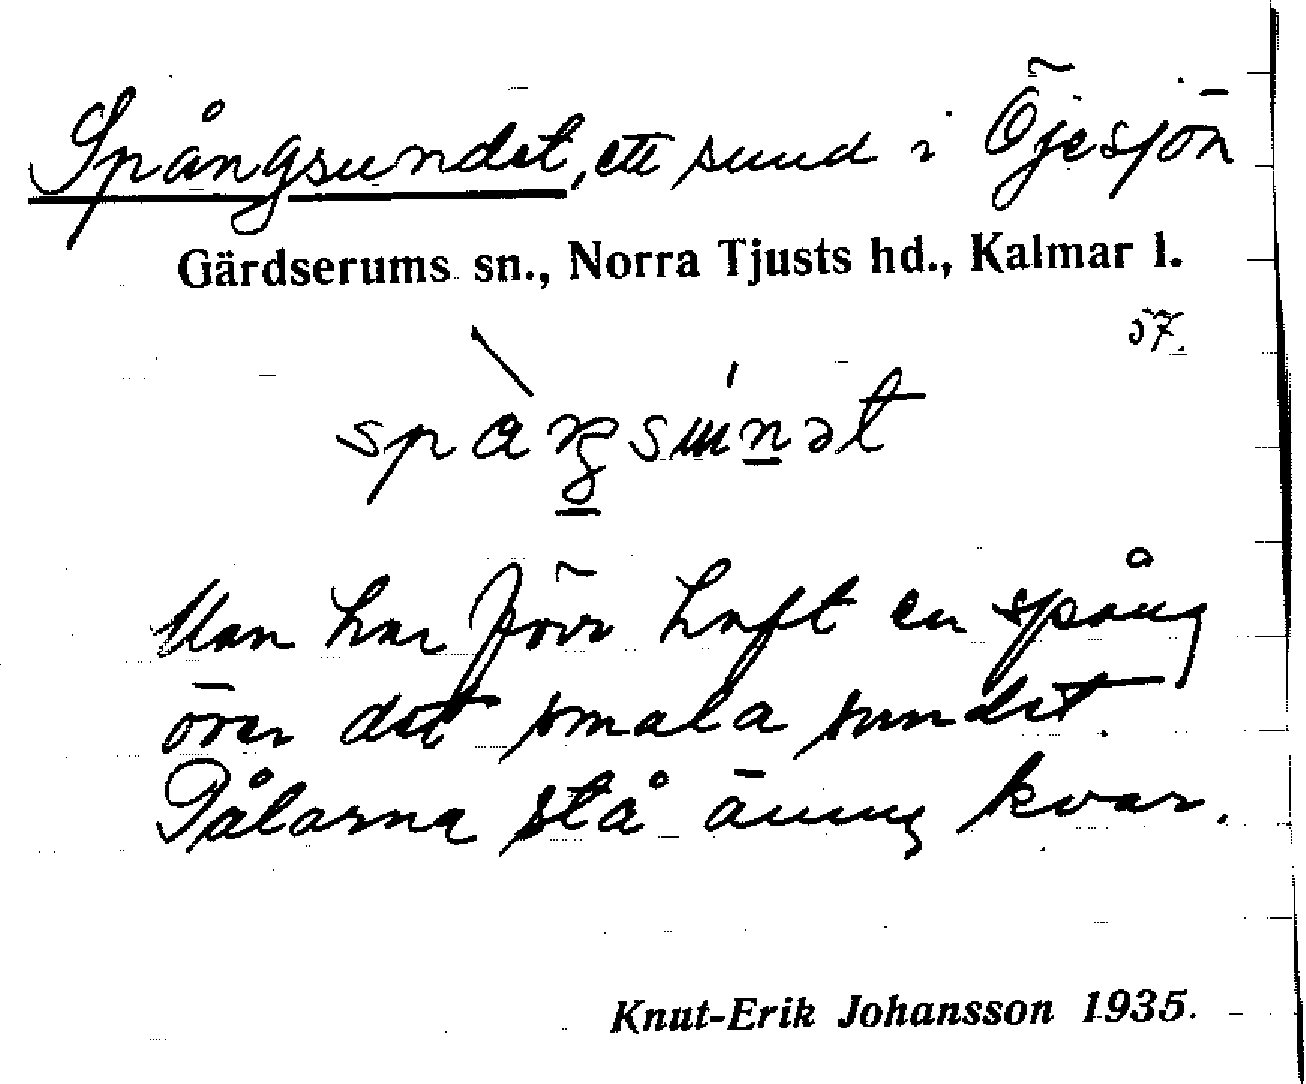 Spångsundet, ett sund i Öjesjön
Gärdserums sn., Norra Tjusts hd., Kalmar l.
57.
Man har förr haft en spång
över det smala sundet.
Pålarna stå ännu kvar.
Knut-Erik Johansson 1935.